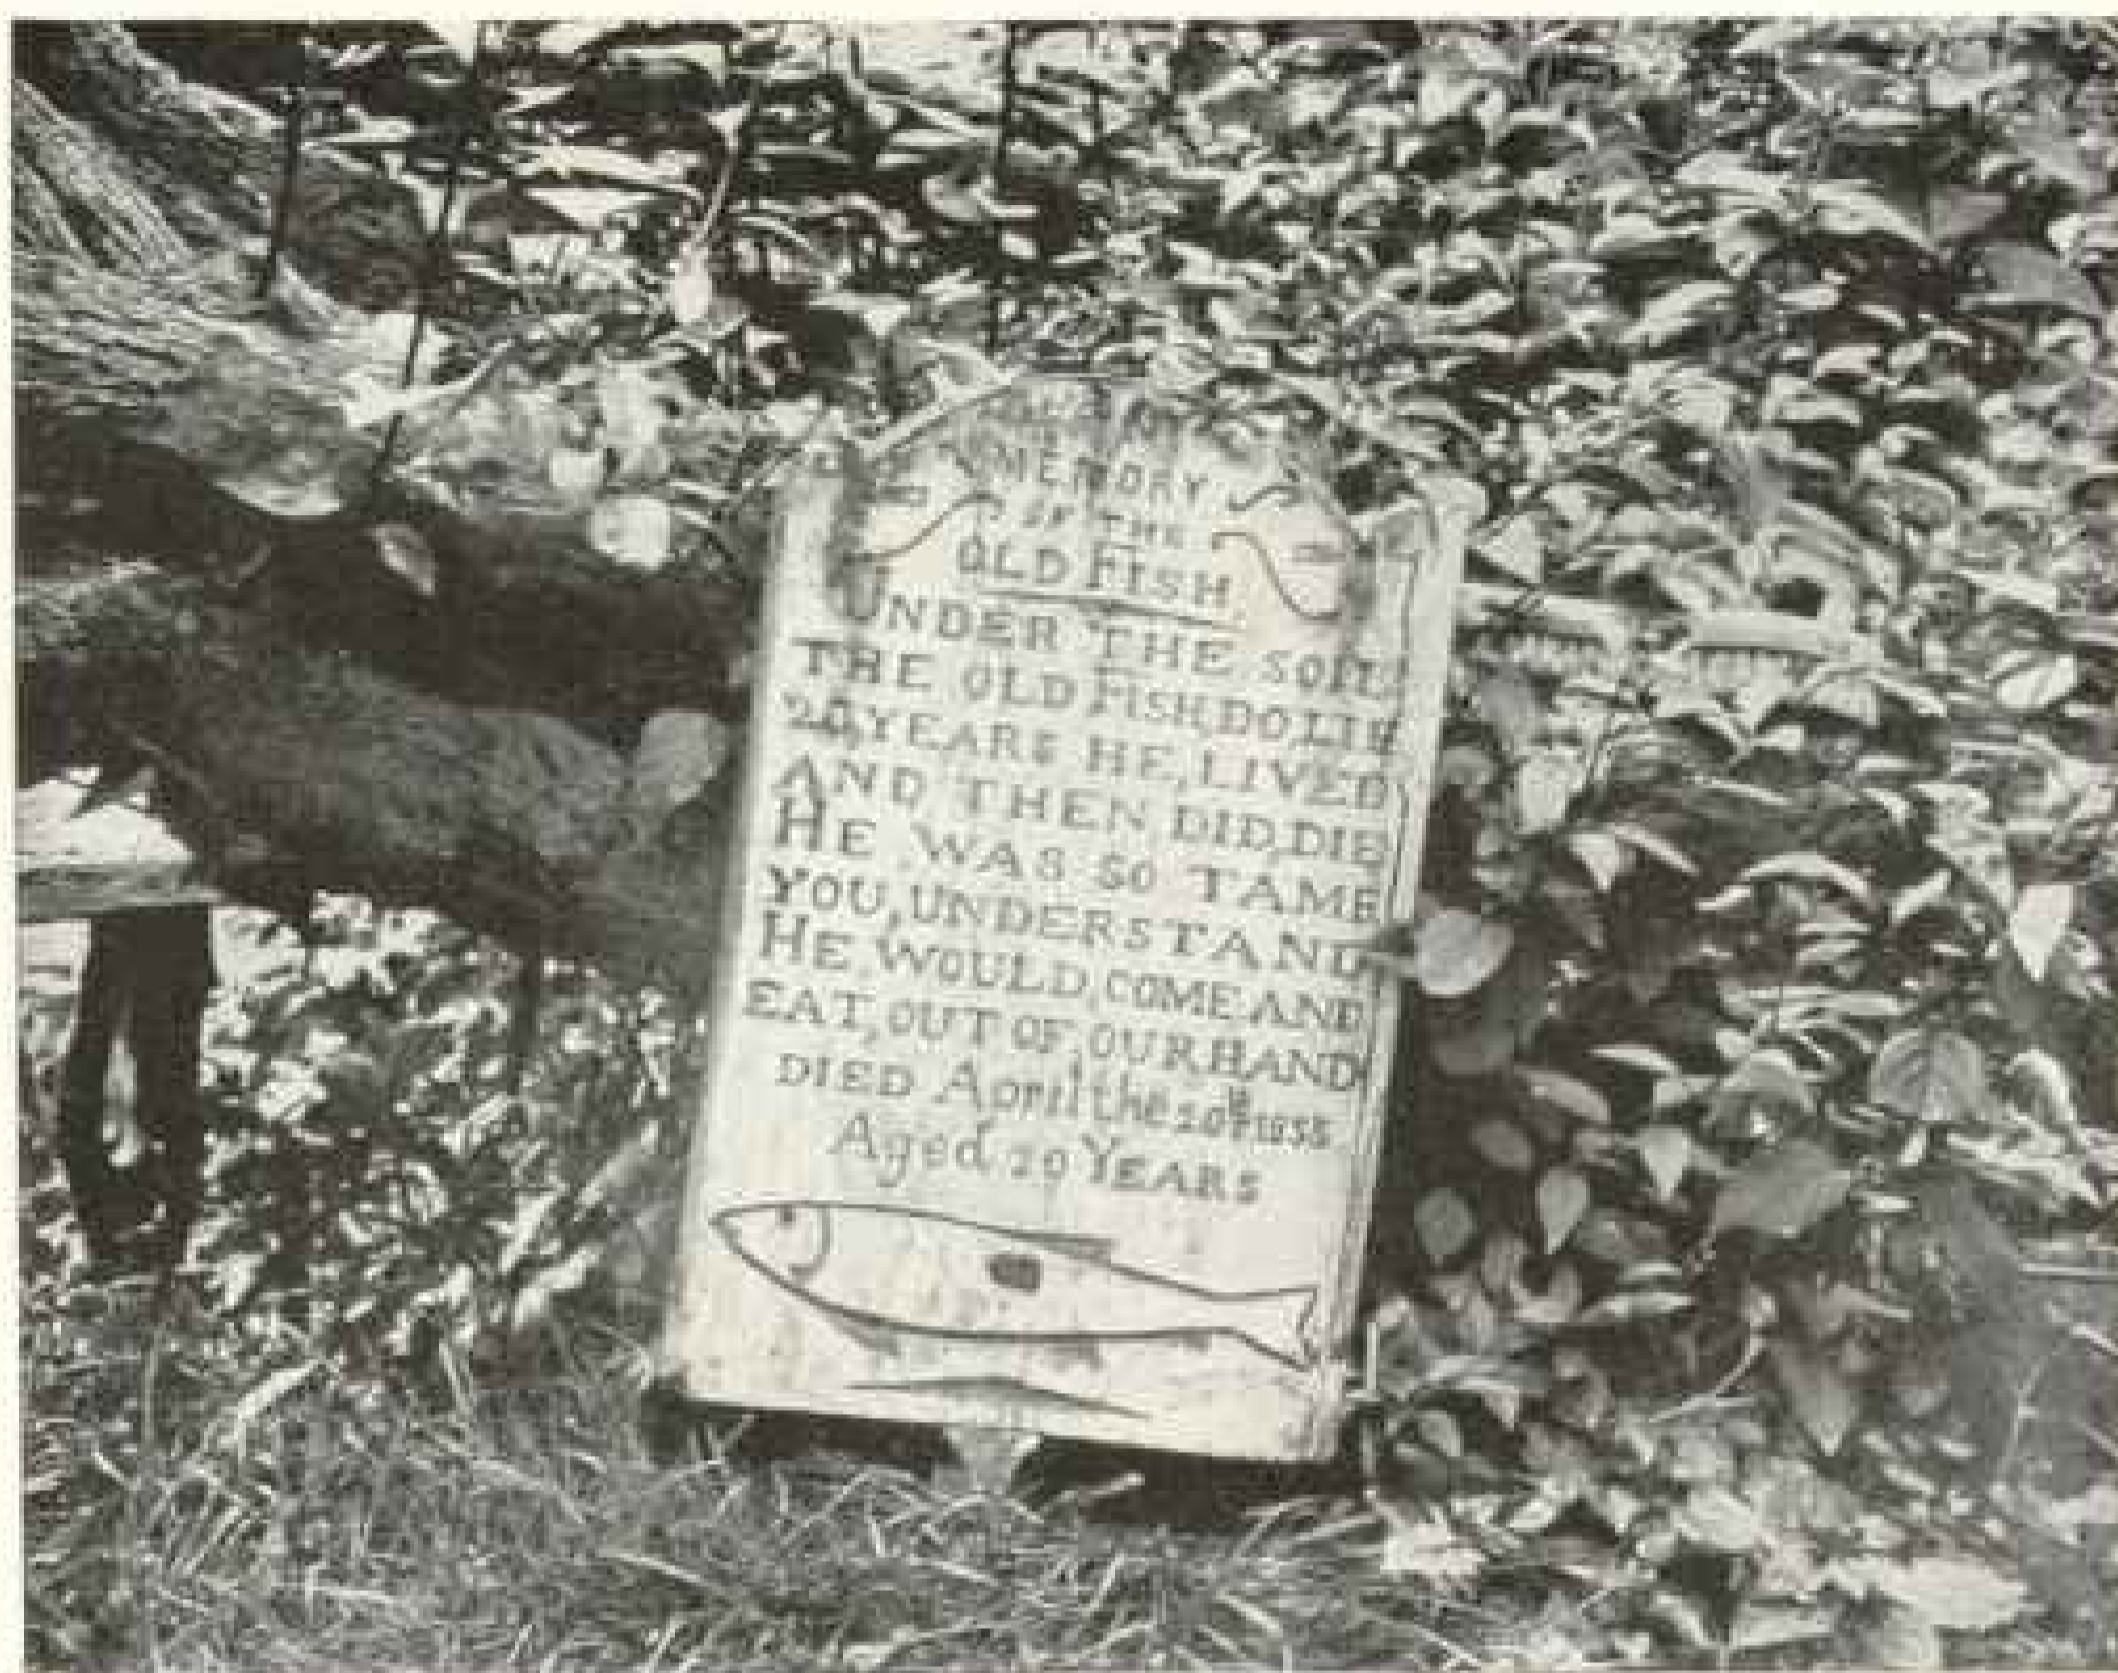 MEMORY
OF THE
OLD FISH.
UNDER THE SOIL
THE OLD FISH, DO, LIE
20, YEARS HE, LIVED
AND, THEN DID, DIE
HE WAS SO TAME
YOU, UNDERSTAND
HE WOULD, COME AND
EAT, OUT OF, OUR HAND
DIED April the 20th 1855
Aged 20 YEARS